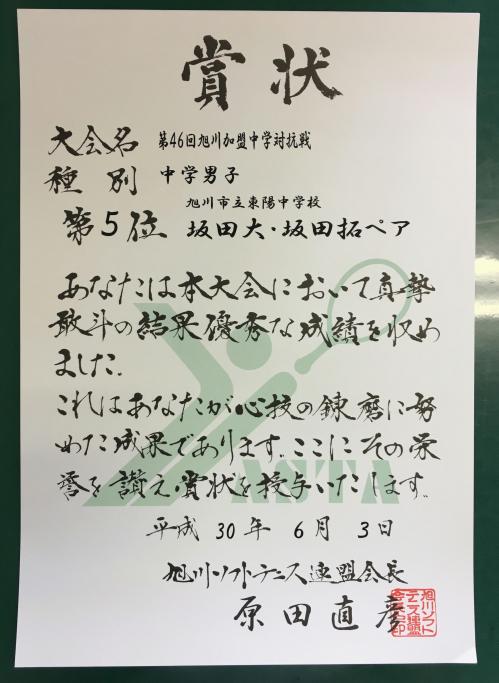 賞状
大会名 第46回旭川加盟中学対抗戦
種別 中学男子
旭川市立東陽中学校
第5位 坂田大・坂田拓ペア
あなたは本大会において真摯
敢斗の結果優秀な成績を収め
ました.
これはあなたが心技の錬磨に努
めた成果であります.ここにその栄
誉を讃え賞状を授与いたします.
ASTA
平成 30年 6月 3日
旭川ソフトテニス連盟会長
原田直彦
旭川ソフト
テニス連盟
会長之印